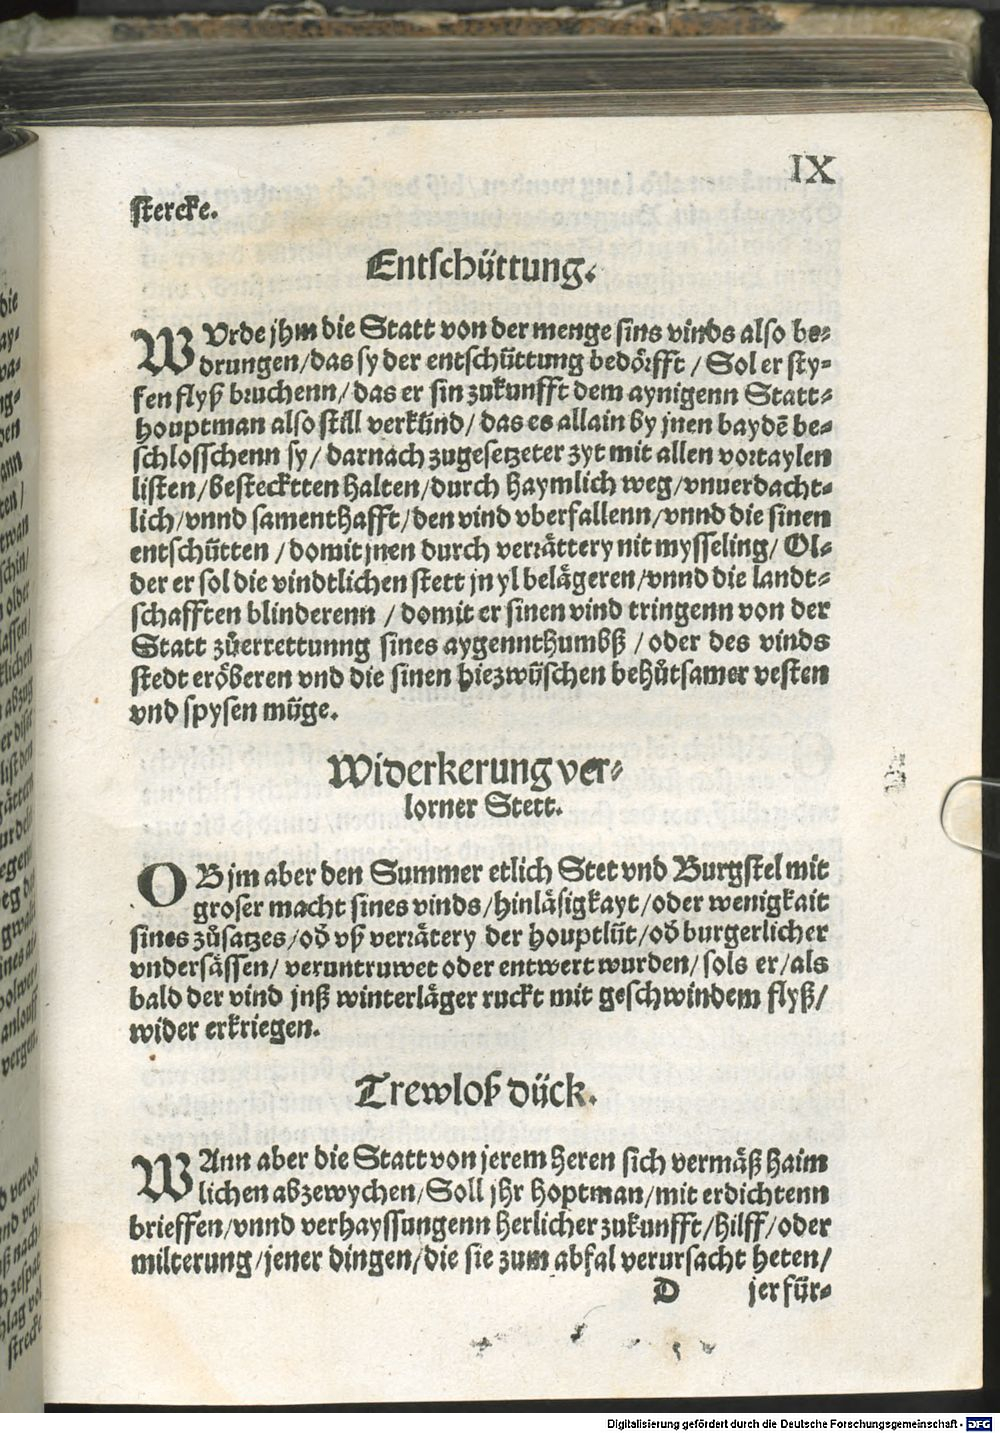 IX
stercke.
Entschüttung.
WUrde jhm die Statt von der menge sins vinds also be⸗
drungen/das sy der entschüttung bedörfft / Sol er sty⸗
fen flyß bruchenn/das er sin zukunfft dem aynigenn Statt⸗
houptman also still verkünd/das es allain by jnen baydē be⸗
schlosschenn sy/darnach zugesetzeter zyt mit allen vortaylen
listen/bestecktten halten/durch haymlich weg/vnuerdacht⸗
lich/vnnd samenthafft/den vind vberfallenn/vnnd die sinen
entschütten /domit jnen durch verrättery nit mysseling/ Ol⸗
der er sol die vindtlichen stett jn yl belägeren/vnnd die landt⸗
schafften blinderenn /domit er sinen vind tringenn von der
Statt zůerrettunng sines aygennthumbß /oder des vinds
stedt eröberen vnd die sinen hiezwüschen behůtsamer vesten
vnd spysen müge.
Widerkerung ver⸗
lorner Stett.
OB jm aber den Summer etlich Stet vnd Burgstel mit
groser macht sines vinds/hinläsigkayt/oder wenigkait
sines zůsatzes/od̄ vß verrätery der houptlüt/od̄ burgerlicher
vndersässen/ veruntruwet oder entwert wurden/sols er/als
bald der vind jnß winterläger ruckt mit geschwindem flyß/
wider erkriegen.
Trewloß dück.
WAnn aber die Statt von jerem heren sich vermäß haim
lichen abzewychen/Soll jhr hoptman/mit erdichtenn
brieffen/vnnd verhayssungenn herlicher zukunfft/hilff/oder
milterung/jener dingen/die sie zum abfal verursacht heten/
D jer für⸗
Digitalisierung gefördert durch die Deutsche Forschungsgemeinschaft - DFG